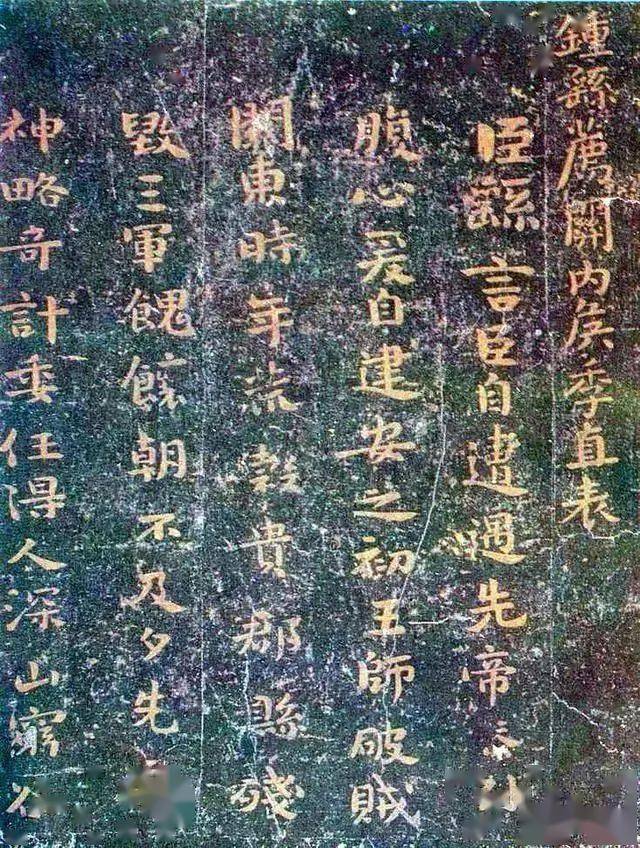 鍾繇薦關内侯季直表
臣繇言臣自遭遇先帝忝列
腹心爰自建安之初王師破賊
關東時年荒穀貴郡縣殘
毀三軍餽饟朝不及夕先
神略奇計委任得人深山窮谷